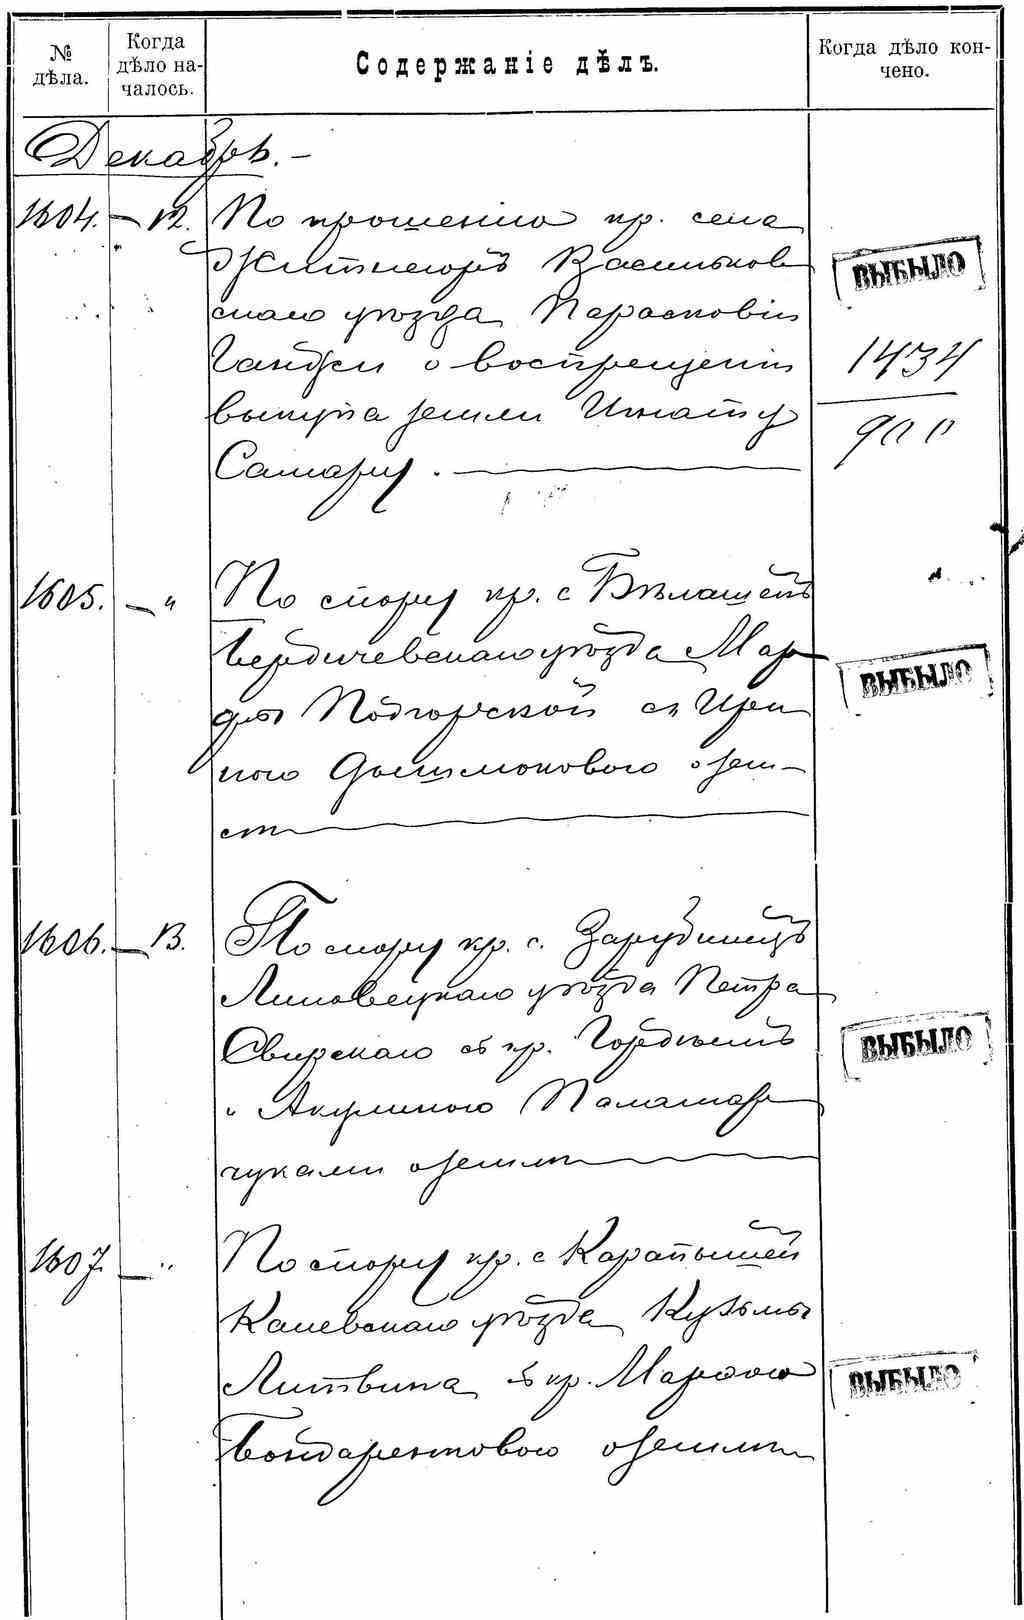 № дѣла.
Когда дѣло на-
чалось.
Содержаніе дѣлъ.
Когда дѣло кон-
чено.
Декабрь.
1604. — 12. По прошенію кр. села
Житнегоръ Васильков
скаго уѣзда Парасковіи
о воспрещеніи
выкупа земли Игнату
Самарук.
ВЫБЫЛО
1434
900
1605. — " По спору кр. с Бѣлашекъ
Бердичевскаго уѣзда Мар
фы Подгорской съ Ири
ною о зем-
ли
ВЫБЫЛО
1606. — 13. По спору кр. с. Зарубинецъ
Липовецкаго уѣзда Петра
Свирскаго съ кр. Гордѣемъ
и Акулиною Паламар
чуками о землѣ
ВЫБЫЛО
1607. — " По спору кр. с Карапышей
Каневскаго уѣзда Кузьмы
Литвина съ кр. Марфою
Бондаренковою о землѣ
ВЫБЫЛО